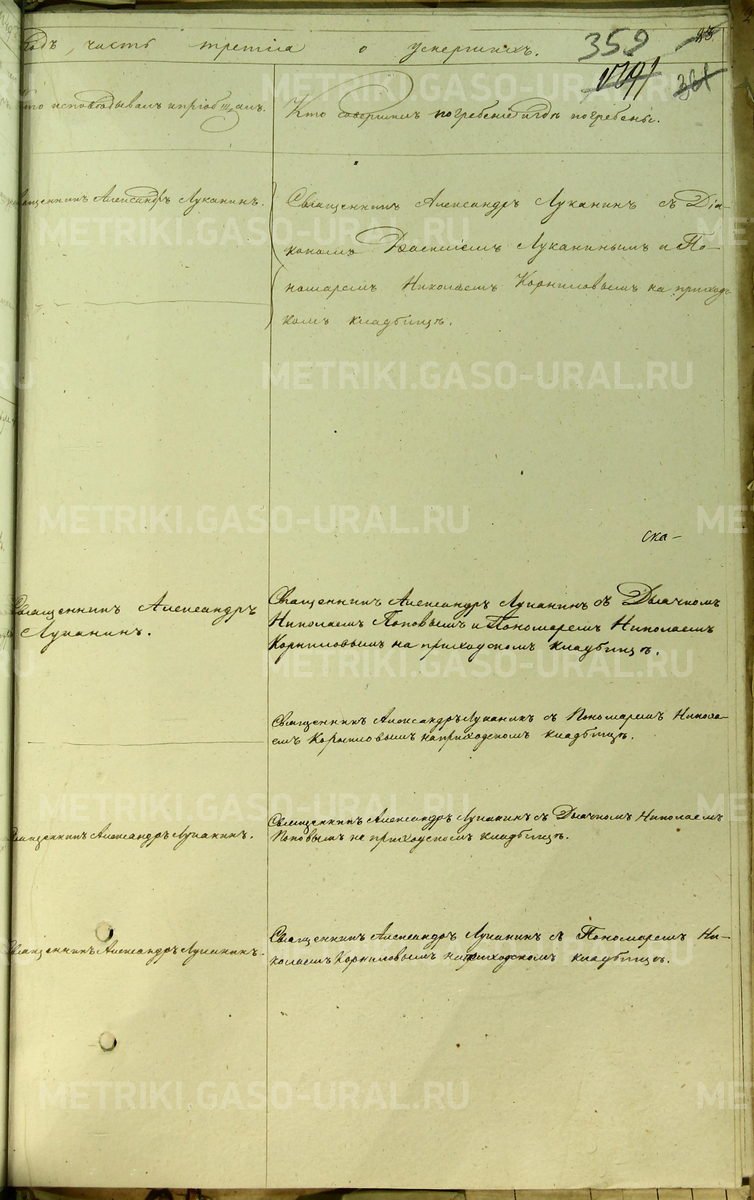 годъ, часть третiя о умершихъ.
359
1791
361
Кто исповѣдывалъ и прiобщалъ.
Кто совершилъ погребенiе и гдѣ погребены.
Священникъ Александръ Луканинъ.
Священникъ Александръ Луканинъ съ Дiа-
кономъ Василiемъ Луканинымъ и По-
номаремъ Николаемъ Корниловымъ на приход-
комъ кладбищѣ.
ска-
Священникъ Александръ
Луканинъ.
Священникъ Александръ Луканинъ съ Дьячкомъ
Николаемъ Поповымъ и Пономаремъ Николаемъ
Корниловымъ на приходскомъ кладбищѣ.
Священникъ Александръ Луканинъ съ Пономаремъ Никола-
емъ Корниловымъ на приходскомъ кладбищѣ.
Священникъ Александръ Луканинъ.
Священникъ Александръ Луканинъ съ Дьячкомъ Николаемъ
Поповымъ не приходскомъ кладбищѣ.
Священникъ Александръ Луканинъ.
Священникъ Александръ Луканинъ съ Пономаремъ Ни-
колаемъ Корниловымъ на приходскомъ кладбищѣ.
METRIKI.GASO-URAL.RU
METRIKI.GASO-URAL.RU
METRIKI.GASO-URAL.RU
METRIKI.GASO-URAL.RU
METRIKI.GASO-URAL.RU
METRIKI.GASO-URAL.RU
METRIKI.GASO-URAL.RU
METRIKI.GASO-URAL.RU